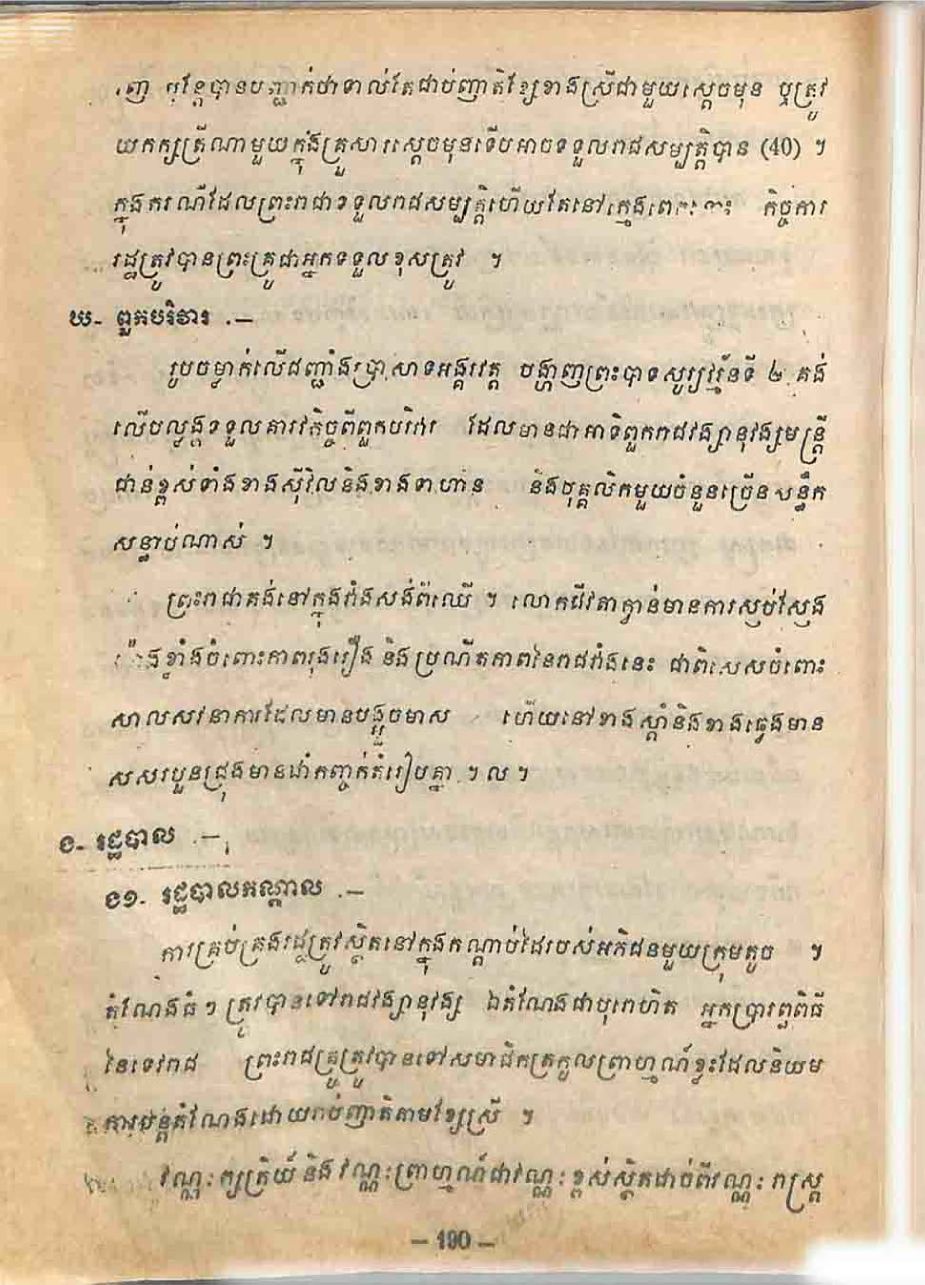 ញ ប៉ុន្តែបានបញ្ជាក់ថាទាល់តែជាប់ញាតិខ្សែខាងស្រីជាមួយស្ដេចមុន ឬត្រូវ
យកក្សត្រីណាមួយក្នុងគ្រួសារស្ដេចមុនទើបអាចទទួលរាជសម្បត្តិបាន (40) ។
ក្នុងករណីដែលព្រះរាជាទទួលរាជសម្បត្តិហើយតែនៅក្មេង កិច្ចការ
រដ្ឋត្រូវបានព្រះគ្រូជាអ្នកទទួលខុសត្រូវ ។
ឃ- ពួកបរិវារ .—
រូបចម្លាក់លើជញ្ជាំងប្រាសាទអង្គរវត្ត បង្ហាញព្រះបាទសូរ្យវរ្ម័នទី ២ គង់
លើបល្ល័ង្កទទួលគារវកិច្ចពីពួកបរិវារ ដែលមានជាអាទិ៍ពួករាជវង្សានុវង្សមន្ត្រី
ជាន់ខ្ពស់ទាំងខាងស៊ីវិលនិងខាងទាហាន និងបុគ្គលិកមួយចំនួនច្រើនសន្ធឹក
សន្ធាប់ណាស់ ។
ព្រះរាជាគង់នៅក្នុងវាំងសង់ពីឈើ ។ លោកជីវតាក្វាន់មានការស្ញប់ស្ញែង
យ៉ាងខ្លាំងចំពោះភាពរុងរឿង និងប្រណីតភាពនៃរាជវាំងនេះ ជាពិសេសចំពោះ
សាលសវនាការដែលមានបង្អួចមាស ហើយនៅខាងស្ដាំនិងខាងឆ្វេងមាន
សសរបួនជ្រុងមានដាំកញ្ចក់តំរៀបគ្នា ។ ល ។
ង- រដ្ឋបាល .—
ង១- រដ្ឋបាលកណ្ដាល .—
ការគ្រប់គ្រងរដ្ឋត្រូវស្ថិតនៅក្នុងកណ្ដាប់ដៃរបស់អភិជនមួយក្រុមតូច ។
តំណែងធំៗ ត្រូវបានទៅរាជវង្សានុវង្ស ឯតំណែងជាបុរោហិត អ្នកប្រារព្ធពិធី
នៃទេវរាជ ព្រះរាជគ្រូត្រូវបានទៅសមាជិកត្រកូលព្រាហ្មណ៍ខ្លះដែលនិយម
ការបន្តតំណែងដោយរាប់ញាតិតាមខ្សែស្រី ។
វណ្ណៈក្សត្រិយ៍ និងវណ្ណៈព្រាហ្មណ៍ជាវណ្ណៈខ្ពស់ស្ថិតដាច់ពីវណ្ណៈរាស្ត្រ
— 190 —